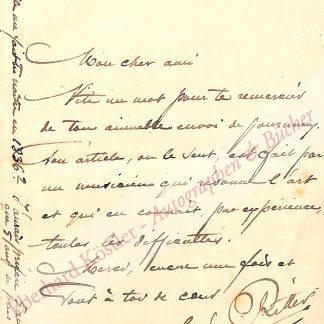 Mon cher ami
Vite un mot pour te remercier
de ton aimable envoi de
Ton article, on le sent, est fait par
un musicien qui adonne l'art
et qui en connait, par expérience,
toutes les difficultés.
Merci, encore une fois et
Tout à toi de cœur
Ritter
en 1836?
Eberhard Köstler - Autographen & Bücher